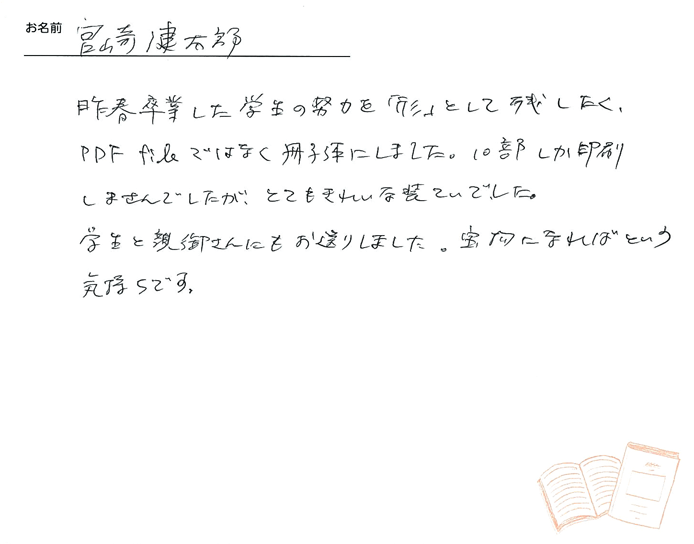 お名前 宮崎健太郎
昨春卒業した学生の努力を「形」として残したく、
PDF fileではなく冊子体にしました。10部しか印刷
しませんでしたが、とてもきれいな装ていでした。
学生と親御さんにもお送りしました。宝物になればという
気持ちです。